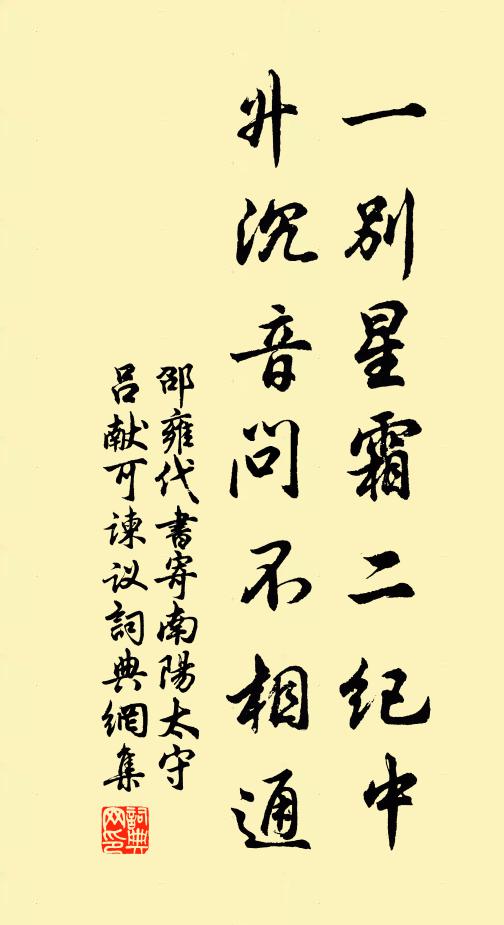 一别星霜二纪中
升沉音问不相通
邵雍代書寄南陽太守
吕献可諫议詞典網集
詞典
网印